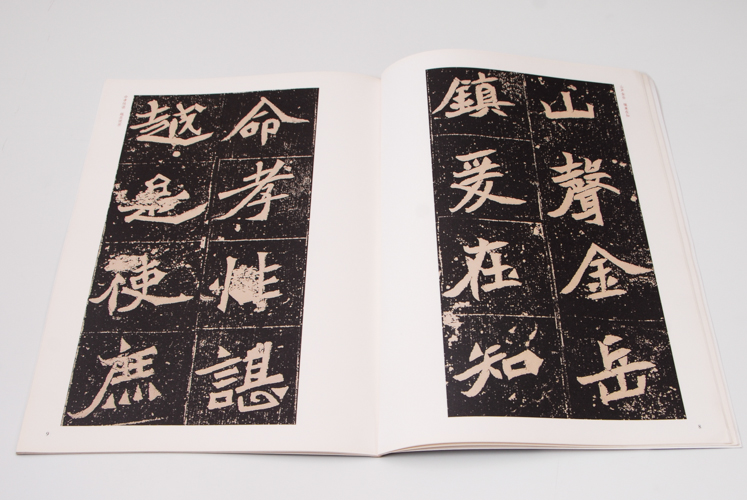 山聲金岳
鎮爰在知
命孝惟諶
越是使庶